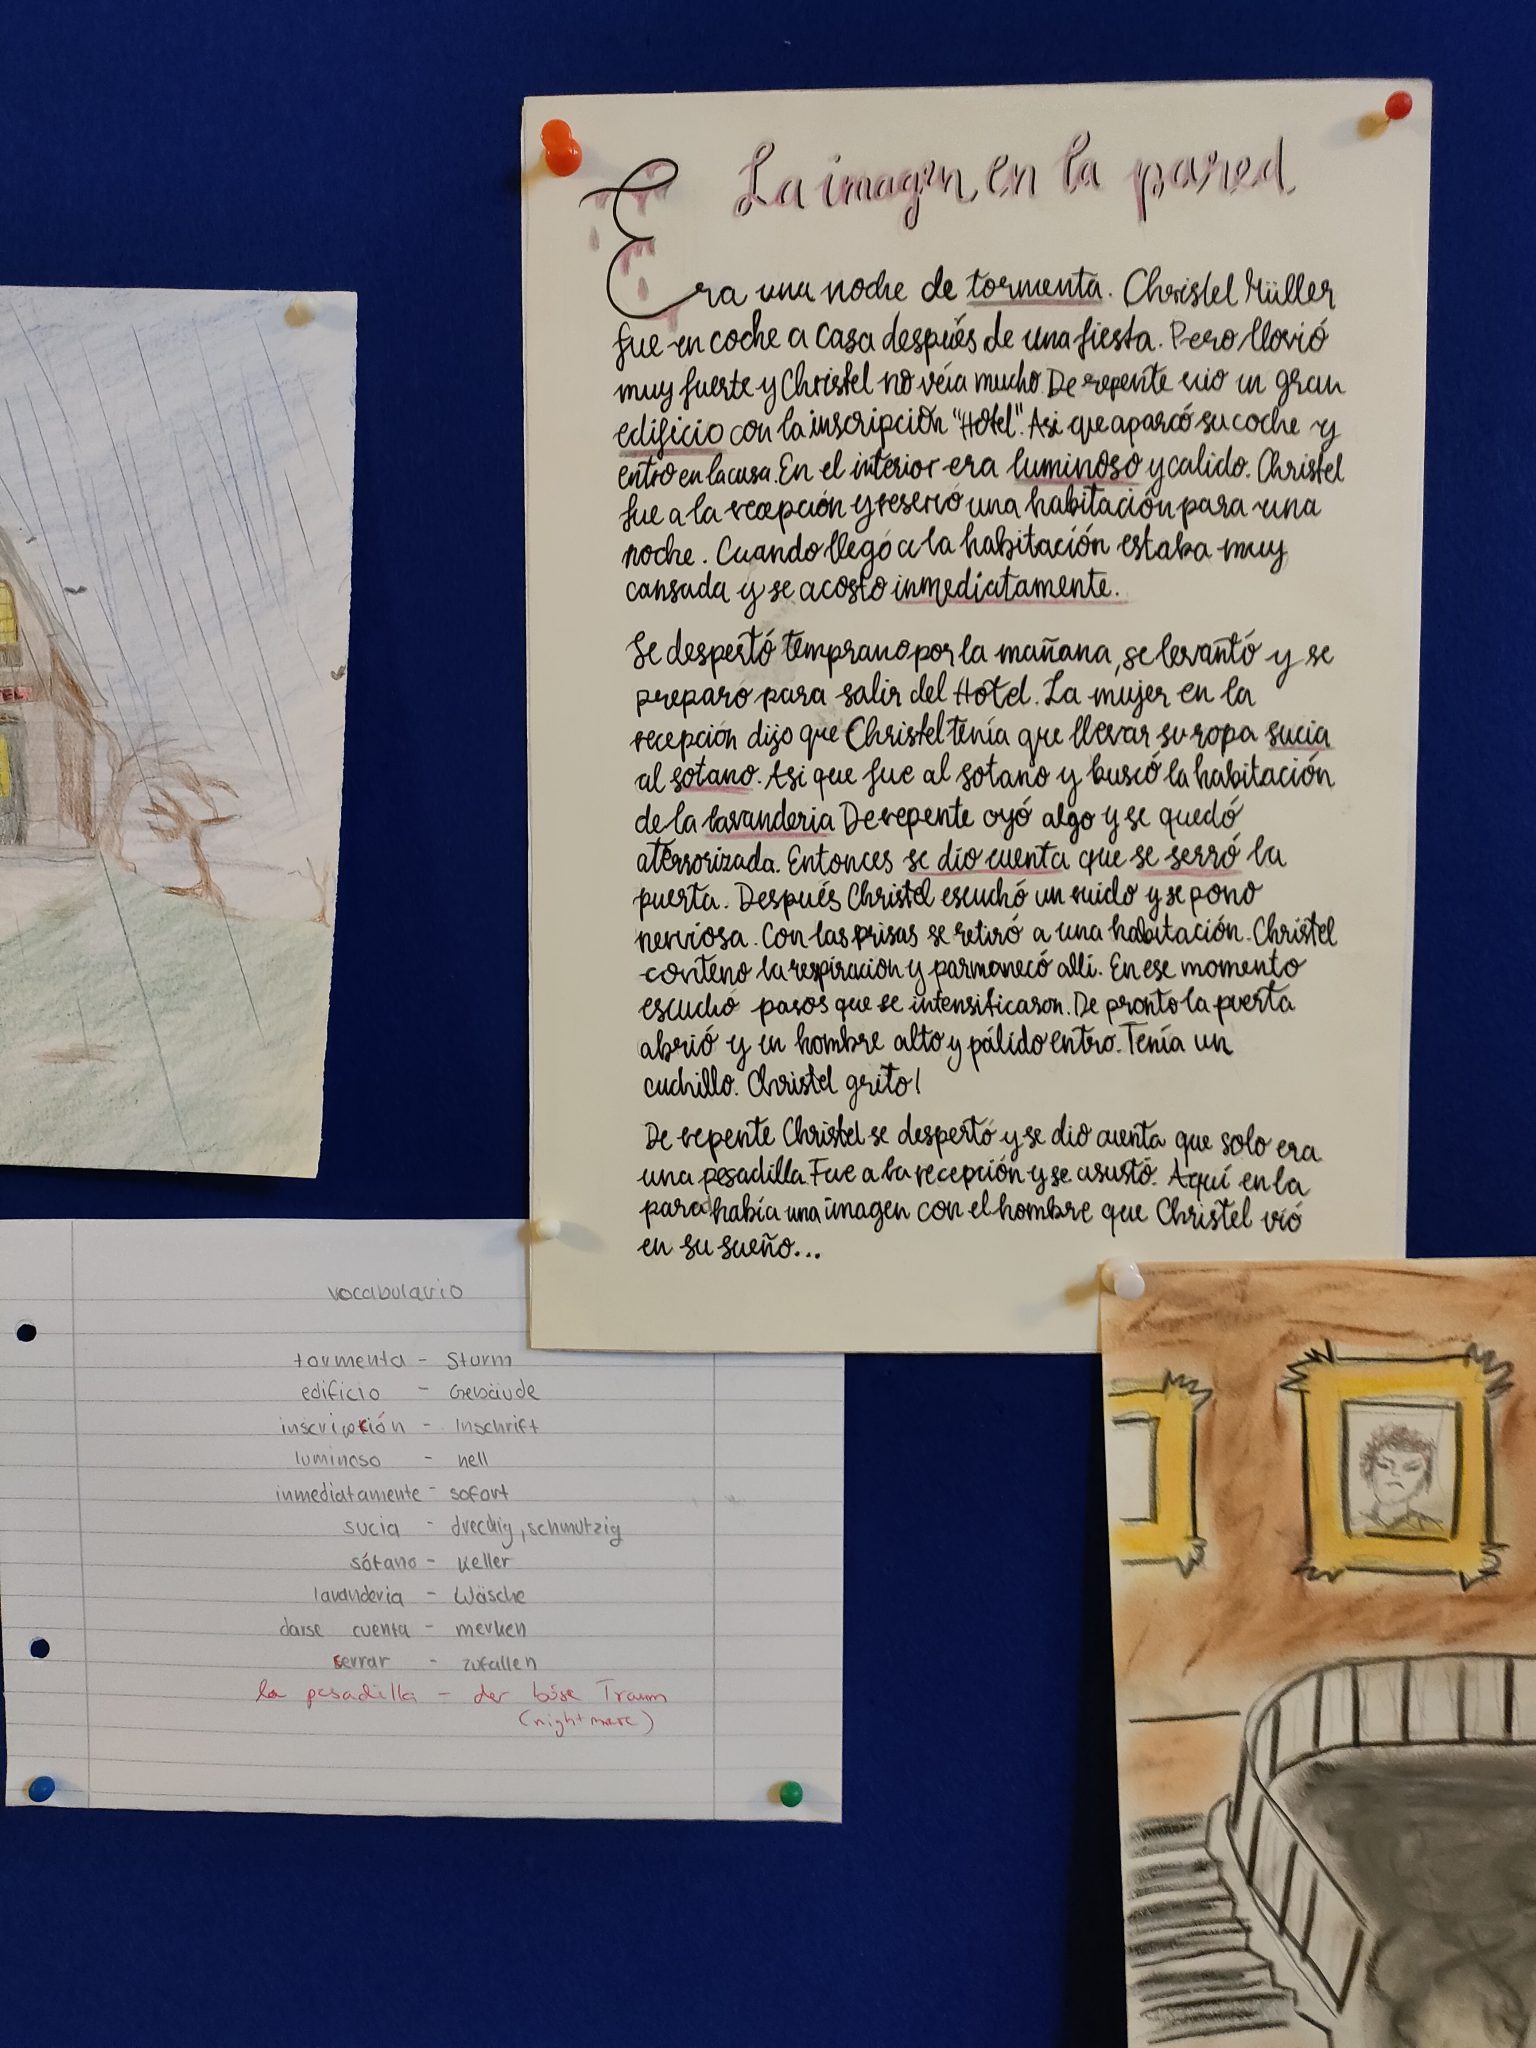 La imagen en la pared
Era una noche de tormenta. Christel Müller
fue en coche a casa después de una fiesta. Pero llovió
muy fuerte y Christel no veía mucho. De repente vio un gran
edificio con la inscripción "Hotel". Asi que aparcó su coche y
entro en la casa. En el interior era luminoso y calido. Christel
fue a la recepción y reservó una habitación para una
noche. Cuando llegó a la habitación estaba muy
cansada y se acosto inmediatamente.
Se despertó temprano por la mañana, se levantó y se
preparó para salir del Hotel. La mujer en la
recepción dijo que Christel tenía que llevar su ropa sucia
al sotano. Asi que fue al sotano y buscó la habitación
de la lavanderia De repente oyó algo y se quedó
aterrorizada. Entonces se dio cuenta que se serró la
puerta. Después Christel escuchó un ruido y se pono
nerviosa. Con las prisas se retiró a una habitación. Christel
conteno la respiracion y parmanecó alli. En ese momento
escuchó pasos que se intensificaron. De pronto la puerta
abrió y un hombre alto y pálido entro. Tenía un
cuchillo. Christel grito!
De repente Christel se despertó y se dio cuenta que solo era
una pesadilla. Fue a la recepción y se asustó. Aquí en la
pared había una imagen con el hombre que Christel vió
en su sueño...
TEL
vocabulario
tormenta - Sturm
edificio - Gebäude
inscripción - Inschrift
luminoso - hell
inmediatamente - sofort
sucia - dreckig, schmutzig
sótano - Keller
lavanderia - Wäsche
darse cuenta - merken
serrar - zufallen
la pesadilla - der böse Traum
(nightmare)